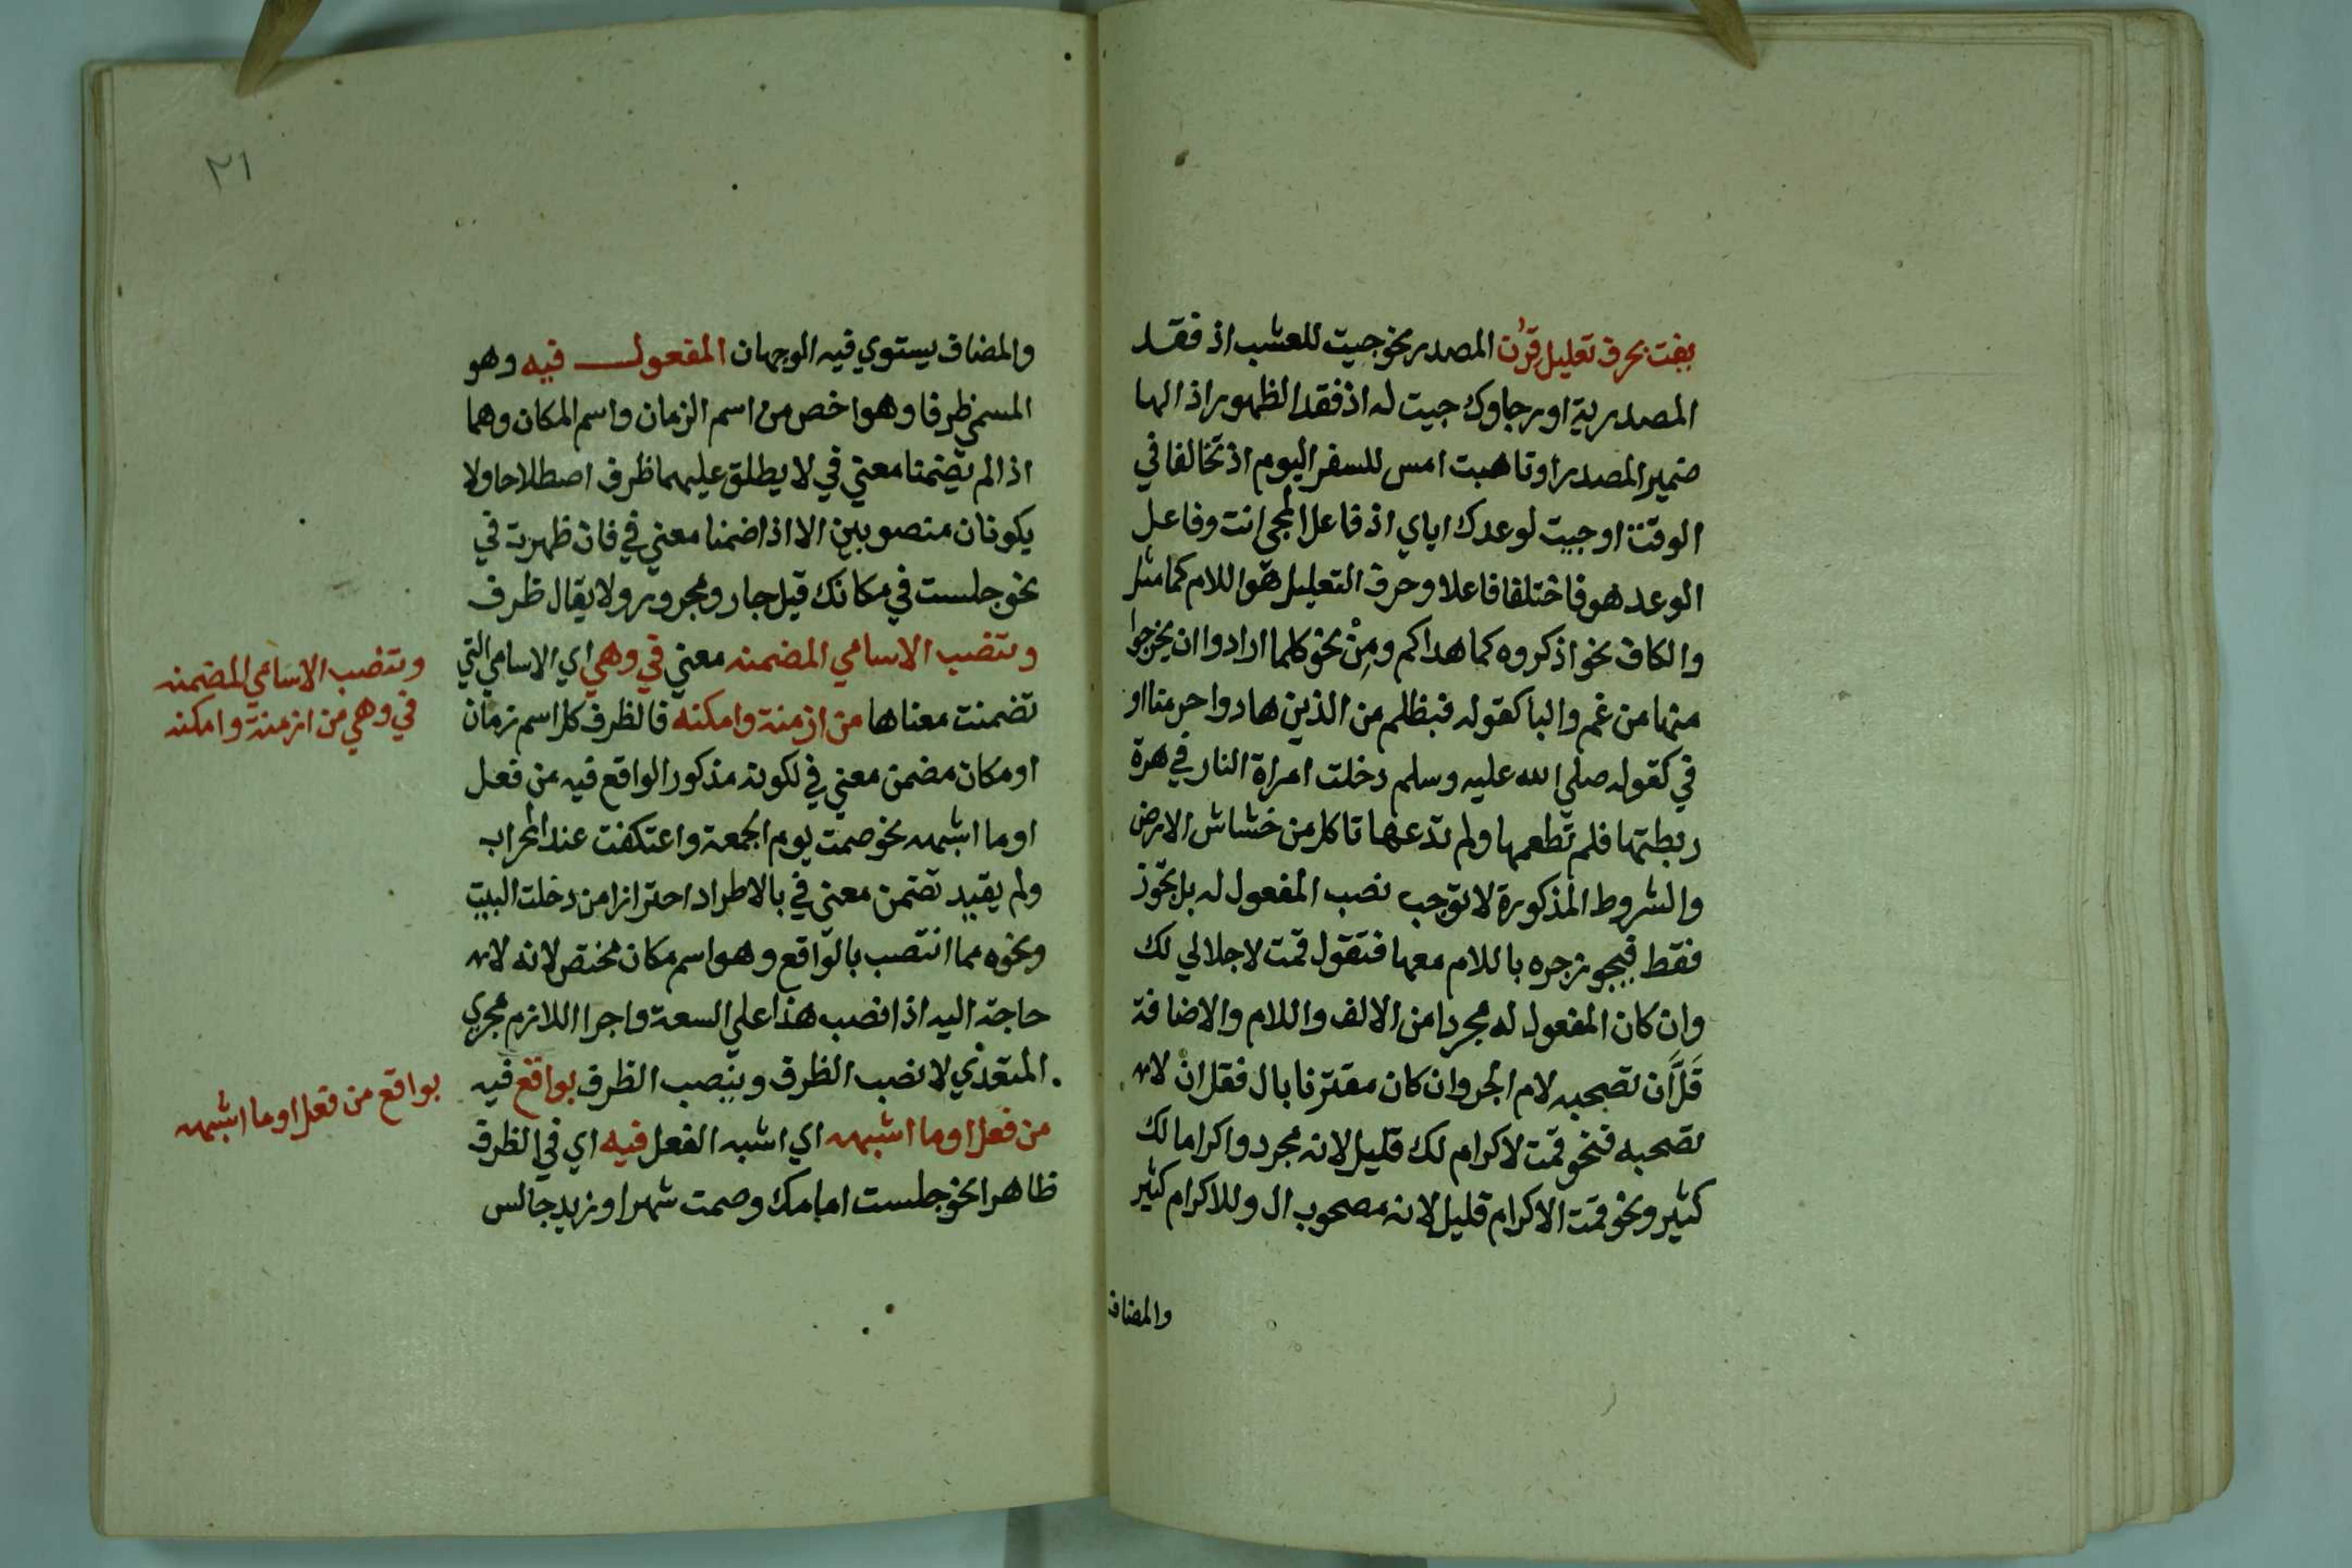 بفت بحرف تعليل قرن المصدر نحو جيت للعشب اذ فقد
المصدرية او رجاوك جيت له اذ فقد الظهور اذ الها
ضمير المصدر او تاهبت امس للسفر اليوم اذ تخالفا في
الوقت او جيت لوعدك اياي اذ فاعل المجي انت وفاعل
الوعد هو فاختلفا فاعلا وحرف التعليل هو اللام كما مثل
والكاف نحو اذكروه كما هداكم ومِنْ نحو كلما ارادوا ان يخرجوا
منها من غم والبا كقوله فبظلم من الذين هادوا حرمنا او
في كقوله صلي الله عليه وسلم دخلت امراة النار في هرة
ربطتها فلم تطعمها ولم تدعها تاكل من خشاش الارض
والشروط المذكورة لا توجب نصب المفعول له بل تجوز
فقط فيجوز جره باللام معها فتقول قمت لاجلالي لك
وان كان المفعول له مجردا من الالف واللام والاضافة
قَلَّ أن تصحبه لام الجر وان كان مقترنا بال فقل انْ لا
تصحبه فنحو قمت لاكرام لك قليل لانه مجرد واكراما لك
كثير ونحو قمت الاكرام قليل لانه مصحوب ال وللاكرام كثير
والمضاف
٢١
والمضاف يستوي فيه الوجهان المفعول فيه وهو
المسمي ظرفا وهو اخص من اسم الزمان واسم المكان وهما
اذا لم تضمنا معني في لا يطلق عليهما ظرف اصطلاحا ولا
يكونان منصوبين الا اذا ضمنا معني في فان ظهرت في
نحو جلست في مكانك قيل جار ومجرور ولا يقال ظرف
وتنصب الاسامي المضمنه معني في وهي اي الاسامي التي
تضمنت معناها من ازمنة وامكنه فالظرف كل اسم زمان
او مكان مضمن معني في لكونه مذكور الواقع فيه من فعل
او ما اشبهه نحو صمت يوم الجمعة واعتكفت عند المحراب
ولم يقيد تضمن معني في بالاطراد احترازا من دخلت البيت
ونحوه مما انتصب بالواقع وهو اسم مكان مختص لانه لا
حاجة اليه اذا نصب هذا علي السعة واجرا اللازم مجري
المتعدي لا نصب الظرف وينصب الظرف بواقع فيه
من فعل او ما اشبهه اي اشبه الفعل فيه اي في الظرف
ظاهرا نحو جلست امامك وصمت شهرا وزيد جالس
وتنصب الاسامي المضمنه
في وهي من ازمنة وامكنه
بواقع من فعل او ما اشبهه